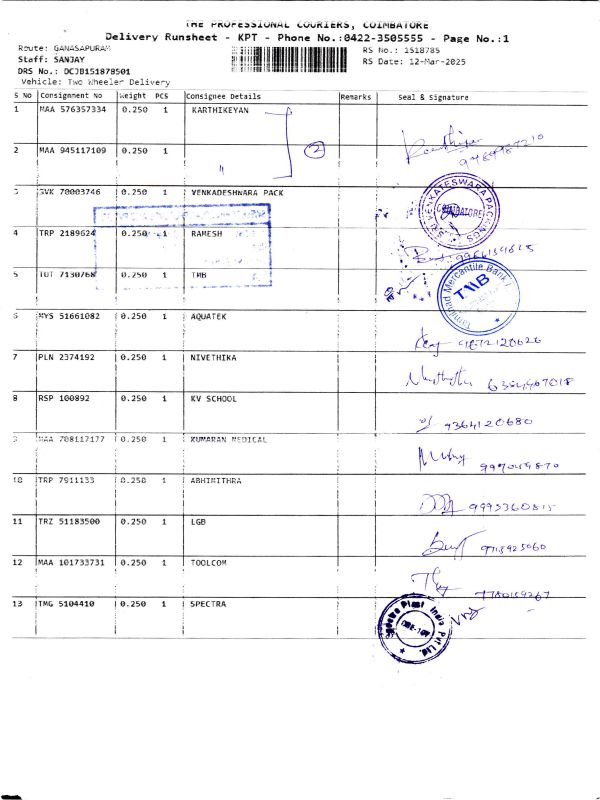 THE PROFESSIONAL COURIERS, COIMBATORE
Delivery Runsheet - KPT - Phone No.:0422-3505555 - Page No.:1
Route: GANASAPURAM
RS No.: 1518785
Staff: SANJAY
RS Date: 12-Mar-2025
DRS No.: DCJB151878501
Vehicle: Two Wheeler Delivery
S No Consignment No Weight PCS Consignee Details Remarks Seal & Signature
1 MAA 576357334 0.250 1 KARTHIKEYAN
2 MAA 945117109 0.250 1 " 2
3 SVK 70003746 0.250 1 VENKADESHWARA PACK
SRI VENKATESWARA PACKINGS
COIMBATORE
4 TRP 2189624 0.250 1 RAMESH
5 TUT 7130768 0.250 1 TMB
Tamilnad Mercantile Bank
TMB
6 MYS 51661082 0.250 1 AQUATEK
7 PLN 2374192 0.250 1 NIVETHIKA
8 RSP 100892 0.250 1 KV SCHOOL
9364120680
9 MAA 708117177 0.250 1 KUMARAN MEDICAL
10 TRP 7911133 0.250 1 ABHIMITHRA
9995360815
11 TRZ 51183500 0.250 1 LGB
12 MAA 101733731 0.250 1 TOOLCOM
13 TMG 5104410 0.250 1 SPECTRA
Plast India Pvt Ltd.